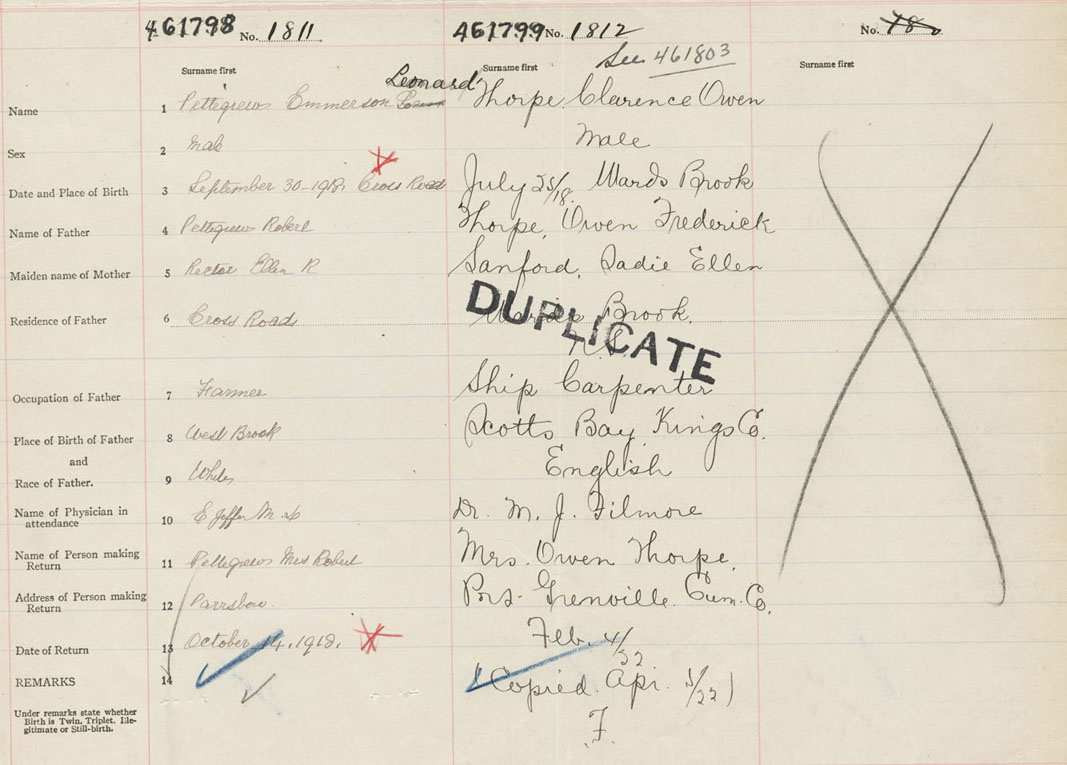 461798 No. 1811
461799 No. 1812
No. 18
See 461803
Surname first
Surname first
Surname first
Name 1 Pettigrew Emmerson Leonard
Thorpe, Clarence Owen
Sex 2 Male
Male
Date and Place of Birth 3 September 30-1918 Cross Roads
July 25/18. Wards Brook
Name of Father 4 Pettigrew Robert
Thorpe, Owen Frederick
Maiden name of Mother 5 Rector Ellen R
Sanford, Sadie Ellen
Residence of Father 6 Cross Roads
Brook.
DUPLICATE
Occupation of Father 7 Farmer
Ship Carpenter
Place of Birth of Father 8 West Brook
Scotts Bay, Kings Co.
and
Race of Father. 9 White
English
Name of Physician in
attendance 10 E Jeffer M
Dr. M. J. Filmore
Name of Person making
Return 11 Pettigrew Mrs Robert
Mrs. Owen Thorpe,
Address of Person making
Return 12 Parrsboro
Port Grenville. Cum. Co.
Date of Return 13 October 14, 1918.
Feb. 4/22
REMARKS 14
(Copied Apr. 5/22)
F.
Under remarks state whether
Birth is Twin, Triplet, Ille-
gitimate or Still-birth.